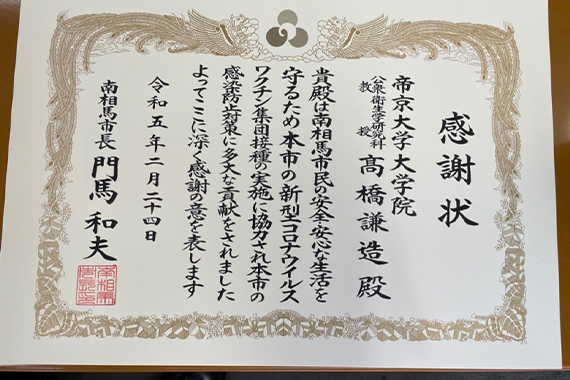 感謝状
帝京大学大学院
公衆衛生学研究科
教授
髙橋謙造殿
貴殿は南相馬市民の安全・安心な生活を
守るため本市の新型コロナウイルス
ワクチン集団接種の実施に協力され本市の
感染防止対策に多大な貢献をされました
よってここに深く感謝の意を表します
令和五年二月二十四日
南相馬市長
門馬和夫